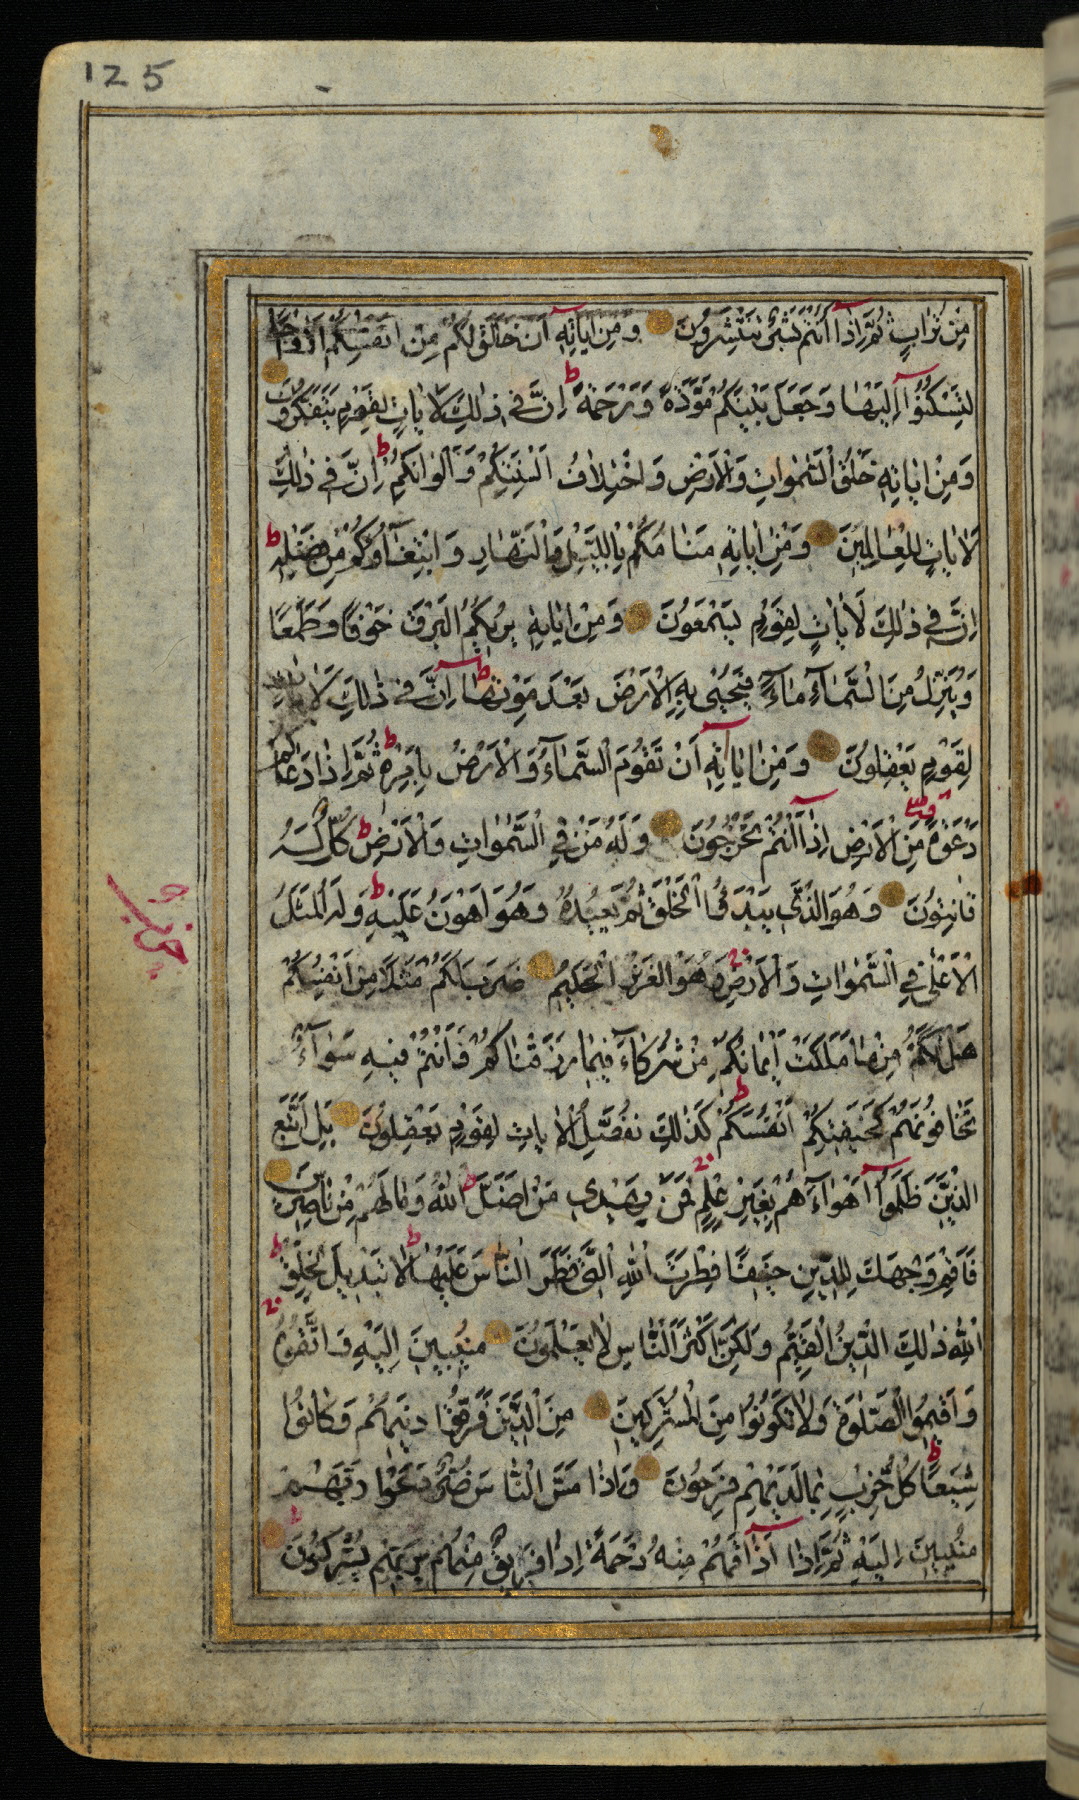 125
مِنْ تُرَابٍ ثُمَّ اِذَآ اَنْتُمْ بَشَرٌ تَنْتَشِرُونَ وَمِنْ اٰيَاتِهٖٓ اَنْ خَلَقَ لَكُمْ مِنْ اَنْفُسِكُمْ اَزْوَاجًا
لِتَسْكُنُوٓا اِلَيْهَا وَجَعَلَ بَيْنَكُمْ مَوَدَّةً وَرَحْمَةً ط اِنَّ فِى ذٰلِكَ لَاٰيَاتٍ لِقَوْمٍ يَتَفَكَّرُونَ
وَمِنْ اٰيَاتِهٖ خَلْقُ السَّمٰوَاتِ وَالْاَرْضِ وَاخْتِلَافُ اَلْسِنَتِكُمْ وَاَلْوَانِكُمْ ط اِنَّ فِى ذٰلِكَ
لَاٰيَاتٍ لِلْعَالِمِينَ وَمِنْ اٰيَاتِهٖ مَنَامُكُمْ بِاللَّيْلِ وَالنَّهَارِ وَابْتِغَآؤُكُمْ مِنْ فَضْلِهٖ ط
اِنَّ فِى ذٰلِكَ لَاٰيَاتٍ لِقَوْمٍ يَسْمَعُونَ وَمِنْ اٰيَاتِهٖ يُرِيكُمُ الْبَرْقَ خَوْفًا وَطَمَعًا
وَيُنَزِّلُ مِنَ السَّمَآءِ مَآءً فَيُحْيِى بِهِ الْاَرْضَ بَعْدَ مَوْتِهَا ط اِنَّ فِى ذٰلِكَ لَاٰيَاتٍ
لِقَوْمٍ يَعْقِلُونَ وَمِنْ اٰيَاتِهٖٓ اَنْ تَقُومَ السَّمَآءُ وَالْاَرْضُ بِاَمْرِهٖ ط ثُمَّ اِذَا دَعَاكُمْ
دَعْوَةً مِنَ الْاَرْضِ اِذَآ اَنْتُمْ تَخْرُجُونَ وَلَهُ مَنْ فِى السَّمٰوَاتِ وَالْاَرْضِ ط كُلٌّ لَهُ
قَانِتُونَ وَهُوَ الَّذِى يَبْدَؤُا الْخَلْقَ ثُمَّ يُعِيدُهُ وَهُوَ اَهْوَنُ عَلَيْهِ ط وَلَهُ الْمَثَلُ
الْاَعْلٰى فِى السَّمٰوَاتِ وَالْاَرْضِ وَهُوَ الْعَزِيزُ الْحَكِيمُ ضَرَبَ لَكُمْ مَثَلًا مِنْ اَنْفُسِكُمْ
هَلْ لَكُمْ مِنْ مَا مَلَكَتْ اَيْمَانُكُمْ مِنْ شُرَكَآءَ فِيمَا رَزَقْنَاكُمْ فَاَنْتُمْ فِيهِ سَوَآءٌ
تَخَافُونَهُمْ كَخِيفَتِكُمْ اَنْفُسَكُمْ ط كَذٰلِكَ نُفَصِّلُ الْاٰيَاتِ لِقَوْمٍ يَعْقِلُونَ بَلِ اتَّبَعَ
الَّذِينَ ظَلَمُوٓا اَهْوَآءَهُمْ بِغَيْرِ عِلْمٍ فَمَنْ يَهْدِى مَنْ اَضَلَّ اللّٰهُ ط وَمَا لَهُمْ مِنْ نَاصِرِينَ
فَاَقِمْ وَجْهَكَ لِلدِّينِ حَنِيفًا فِطْرَتَ اللّٰهِ الَّتِى فَطَرَ النَّاسَ عَلَيْهَا ط لَا تَبْدِيلَ لِخَلْقِ ط
اللّٰهِ ذٰلِكَ الدِّينُ الْقَيِّمُ وَلٰكِنَّ اَكْثَرَ النَّاسِ لَا يَعْلَمُونَ مُنِيبِينَ اِلَيْهِ وَاتَّقُوهُ
وَاَقِيمُوا الصَّلٰوةَ وَلَا تَكُونُوا مِنَ الْمُشْرِكِينَ مِنَ الَّذِينَ فَرَّقُوا دِينَهُمْ وَكَانُوا
شِيَعًا ط كُلُّ حِزْبٍ بِمَا لَدَيْهِمْ فَرِحُونَ وَاِذَا مَسَّ النَّاسَ ضُرٌّ دَعَوْا رَبَّهُمْ
مُنِيبِينَ اِلَيْهِ ثُمَّ اِذَآ اَذَاقَهُمْ مِنْهُ رَحْمَةً اِذَا فَرِيقٌ مِنْهُمْ بِرَبِّهِمْ يُشْرِكُونَ